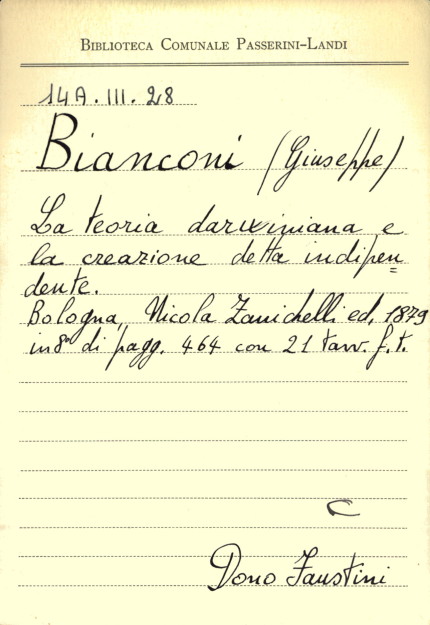 BIBLIOTECA COMUNALE PASSERINI-LANDI
14A. III. 28
Bianconi (Giuseppe)
La teoria darwiniana e
la creazione detta indipen=
dente.
Bologna, Nicola Zanichelli ed. 1879
in 8° di pagg. 464 con 21 tavv. f. t.
C
Dono Faustini